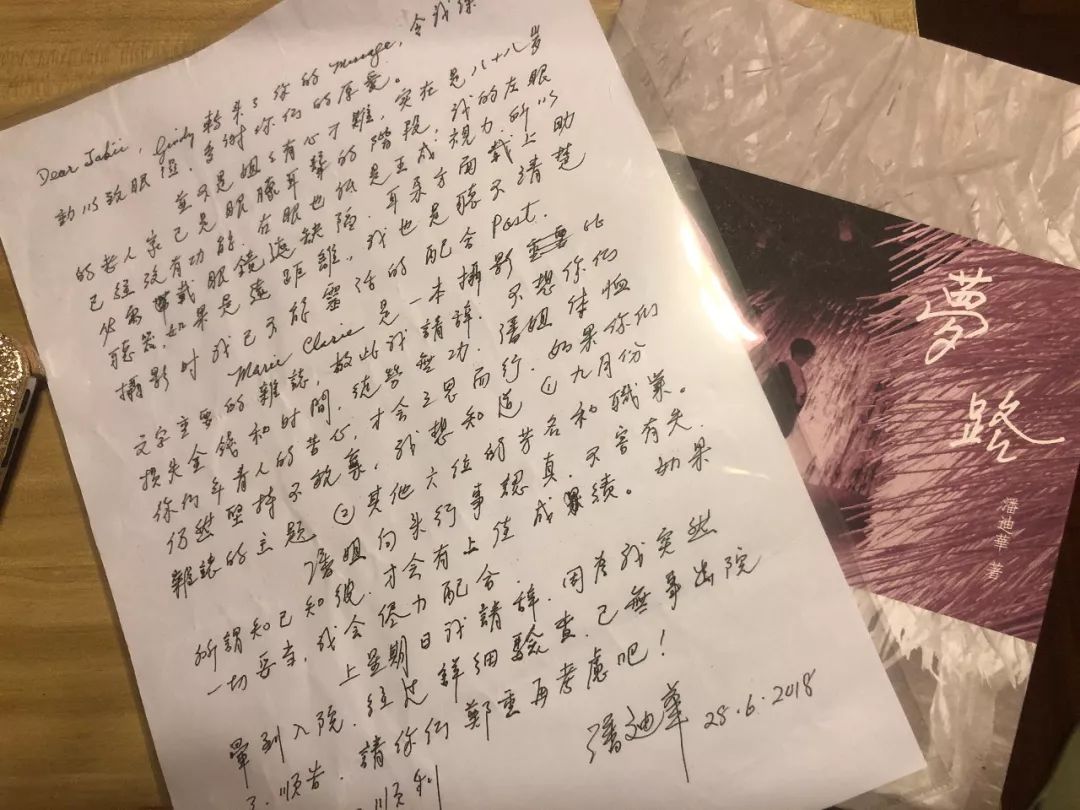 Dear Jakii, Cindy 轉来了你的 message, 令我深
動以致眼濕, 多谢你们的厚爱。
並不是姐姐有心刁難, 实在是八十八岁
的老人家已是眼朦耳聋的階段, 我的左眼
已經没有功能, 右眼也祇是五成視力所以
必需戴眼鏡遮缺陷. 耳朵方面戴上助
聽器, 如果是遠距離, 我也是聽不清楚
攝影时我已不能靈活的配合 Post.
Marie Clarie 是一本攝影比
文字重要的雜誌, 故此我請辞. 不想你们
损失金錢和时间, 徒劳無功. 潘姐体恤
你们年青人的苦心, 才会三思而行. 如果你们
仍然堅持不放棄, 我想知道 ① 九月份
雜誌的主題 ② 其他六位的芳名和職業。
潘姐向来行事認真, 不容有失.
所謂知己知彼, 才会有上佳成績。如果
一切妥当, 我会尽力配合.
上星期日我請辞, 因为我突然
暈到入院, 经过詳细驗查, 已無事出院
了. 順告. 請你们鄭重再考慮吧!
順利
潘迪華 28.6.2018
夢
路
潘迪華 著